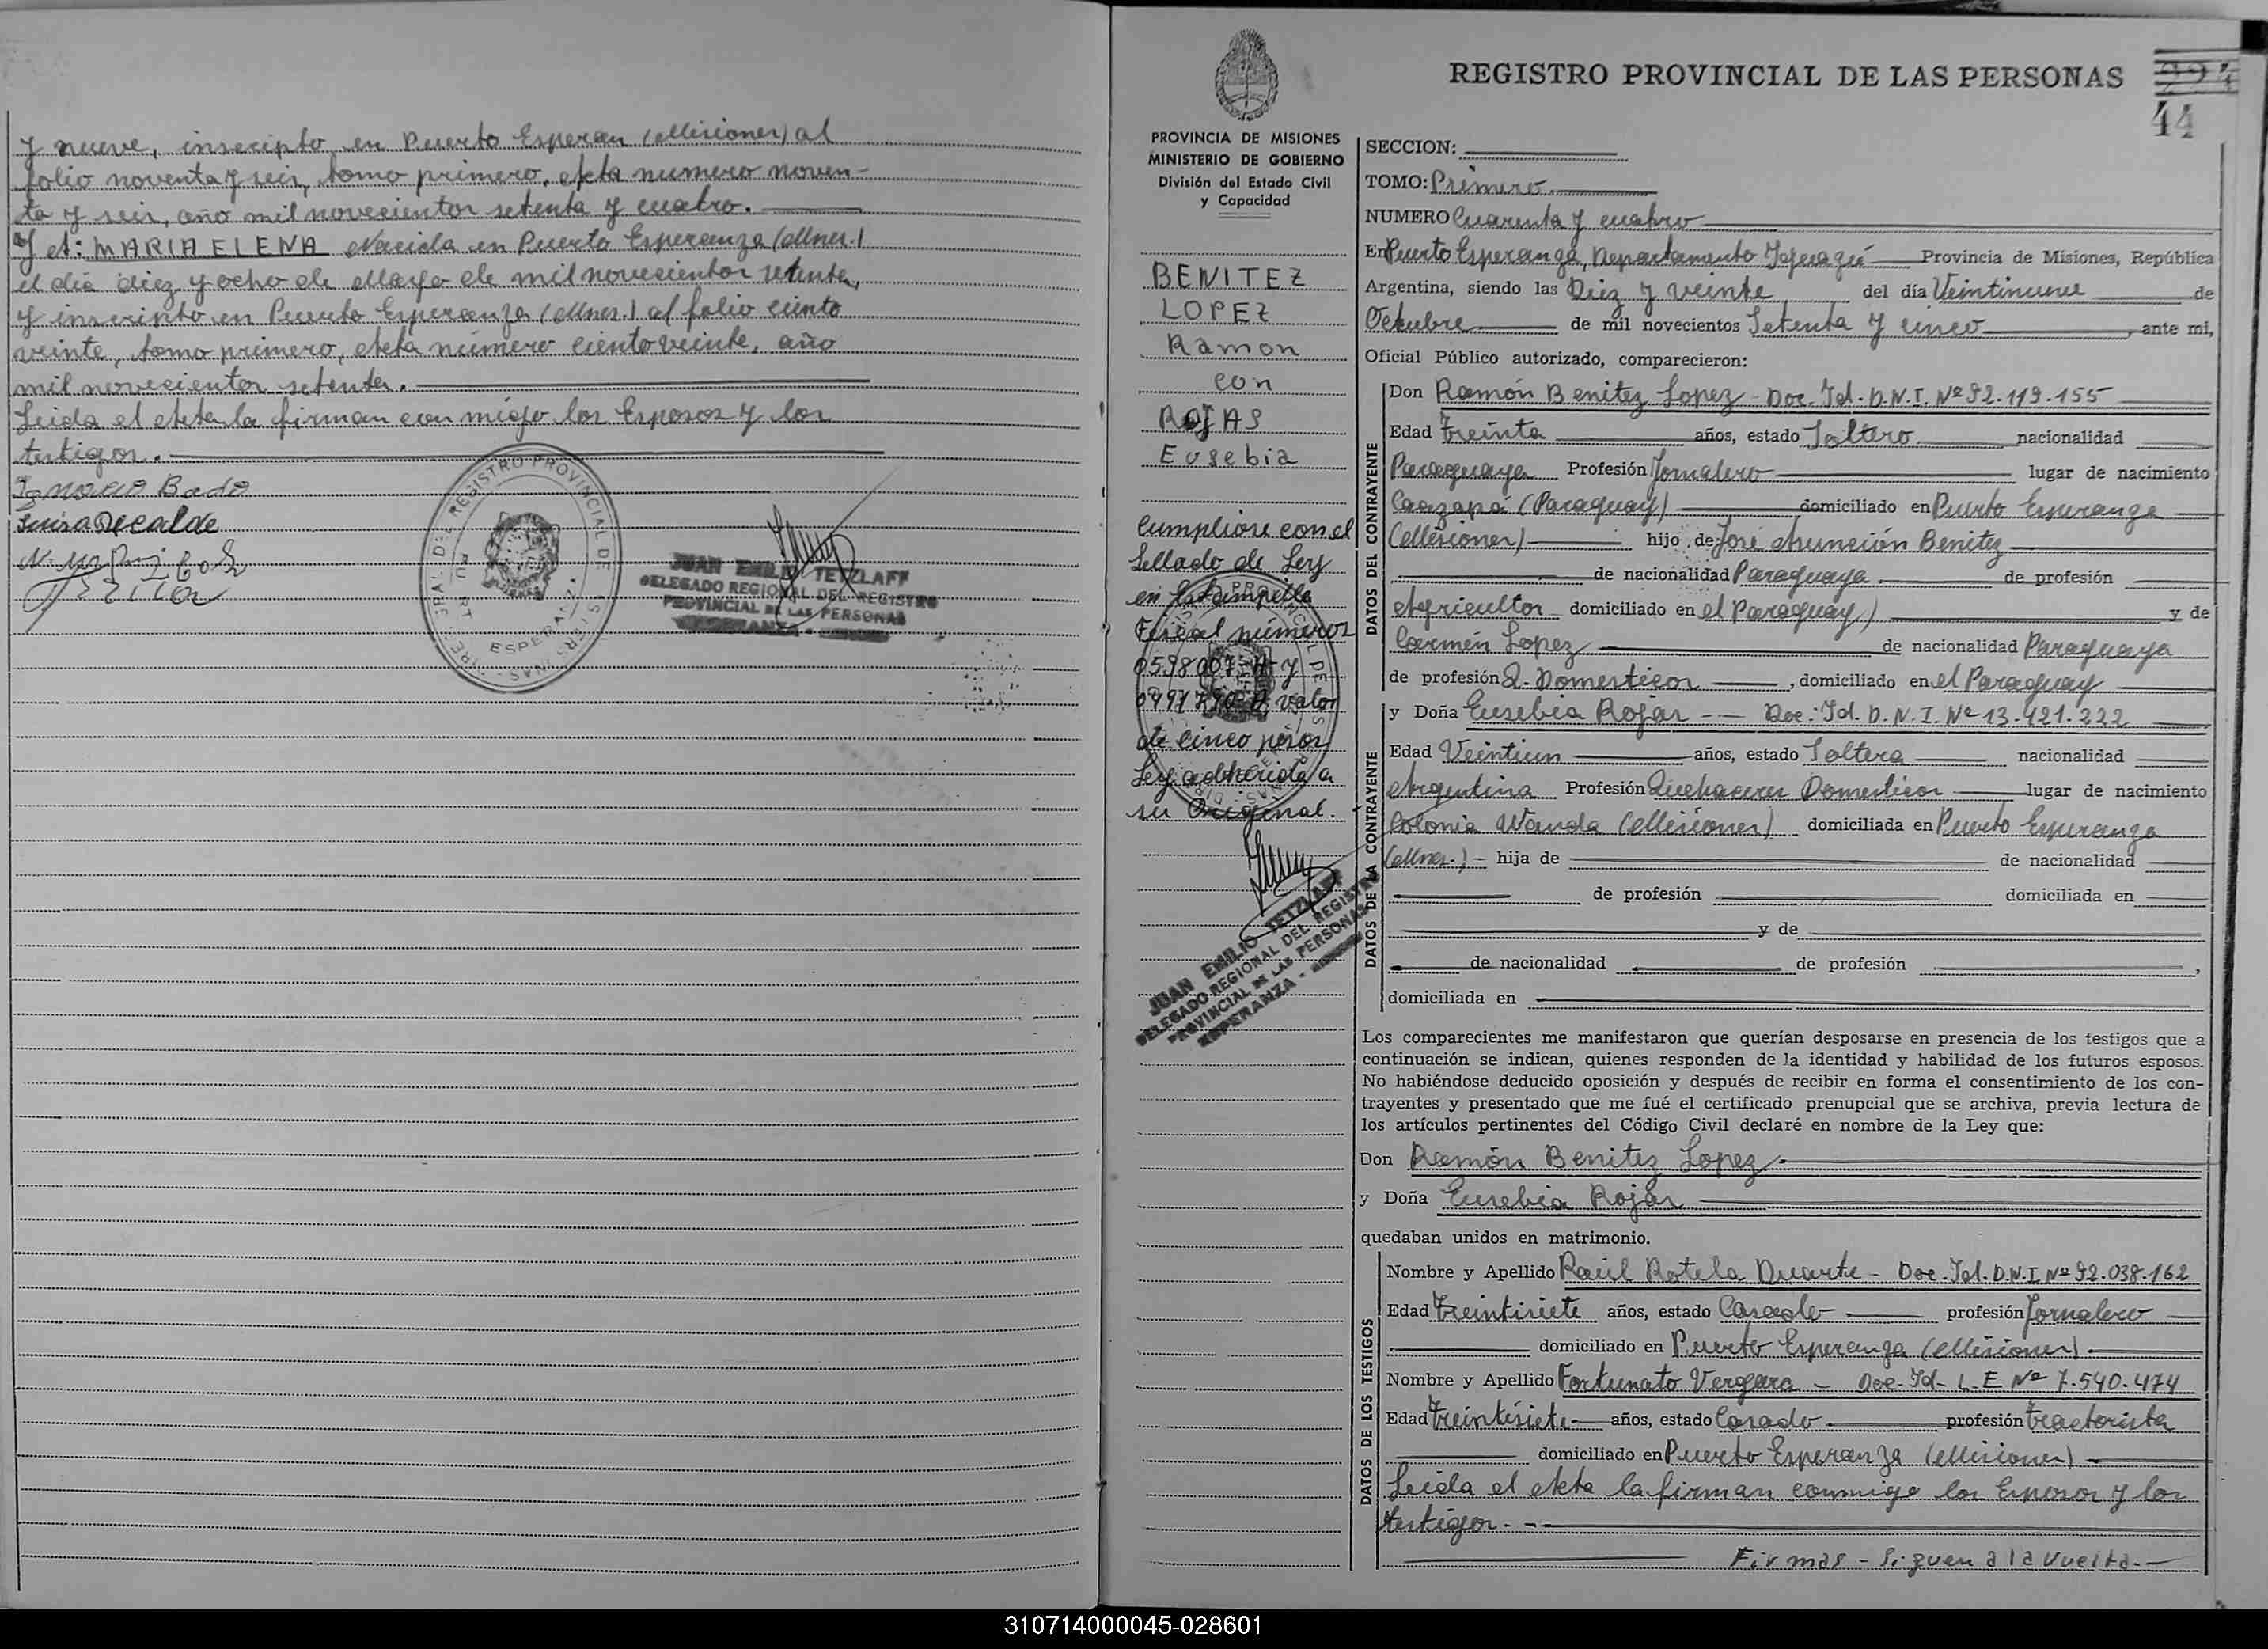 y nueve, inscripto en Puerto Esperan (Misiones) al
folio noventa y seis, tomo primero, Acta numero noven-
ta y seis, año mil novecientos setenta y cuatro.
Y A: MARIA ELENA Nacida en Puerto Esperanza (Mnes.)
el día diez y ocho de Mayo de mil novecientos setenta,
y inscripto en Puerto Esperanza (Mnes.) al folio ciento
veinte, tomo primero, Acta número ciento veinte, año
mil novecientos setenta.
Leida el Acta la firman con migo los Esposos y los
testigos.
Ignacio Bado
Luisa Recalde
REGISTRO PROVINCIAL DE
ESPERANZA
JUAN EMILIO TETZLAFF
DELEGADO REGIONAL DEL REGISTRO
PROVINCIAL DE LAS PERSONAS
ESPERANZA -
REGISTRO PROVINCIAL DE LAS PERSONAS
44
PROVINCIA DE MISIONES
MINISTERIO DE GOBIERNO
División del Estado Civil
y Capacidad
BENITEZ
LOPEZ
Ramon
con
ROJAS
Eusebia
Cumplióse con el
Sellado de Ley
en Estampilla
Fiscal números
y
valor
de cinco pesos
Ley adherida a
su Original.
JUAN EMILIO TETZLAFF
DELEGADO REGIONAL DEL REGISTRO
PROVINCIAL DE LAS PERSONAS
ESPERANZA -
SECCION:
TOMO: Primero
NUMERO Cuarenta y cuatro
En Puerto Esperanza, Departamento Iguazú Provincia de Misiones, República
Argentina, siendo las Diez y veinte del día Veintinueve de
Octubre de mil novecientos Setenta y cinco, ante mi,
Oficial Público autorizado, comparecieron:
DATOS DEL CONTRAYENTE
Don Ramón Benitez Lopez - Doc. Id. D.N.I. Nº 92.119.155
Edad Treinta años, estado Soltero nacionalidad
Paraguaya Profesión Jornalero lugar de nacimiento
Caazapá (Paraguay) domiciliado en Puerto Esperanza
(Misiones) hijo de José Asunción Benitez
de nacionalidad Paraguaya de profesión
Agricultor domiciliado en el Paraguay) y de
Carmen Lopez de nacionalidad Paraguaya
de profesión Q. Domesticos, domiciliado en el Paraguay
DATOS DE LA CONTRAYENTE
y Doña Eusebia Rojas -- Doc. Id. D.N.I. Nº 13.421.222
Edad Veintiun años, estado Soltera nacionalidad
Argentina Profesión Quehaceres Domesticos lugar de nacimiento
Colonia Wanda (Misiones) domiciliada en Puerto Esperanza
(Mnes.) - hija de de nacionalidad
de profesión domiciliada en
y de
de nacionalidad de profesión ,
domiciliada en
Los comparecientes me manifestaron que querían desposarse en presencia de los testigos que a
continuación se indican, quienes responden de la identidad y habilidad de los futuros esposos.
No habiéndose deducido oposición y después de recibir en forma el consentimiento de los con-
trayentes y presentado que me fué el certificado prenupcial que se archiva, previa lectura de
los artículos pertinentes del Código Civil declaré en nombre de la Ley que:
Don Ramón Benitez Lopez.
y Doña Eusebia Rojas
quedaban unidos en matrimonio.
DATOS DE LOS TESTIGOS
Nombre y Apellido Raúl Rotela Duarte - Doc. Id. D.N.I. Nº 92.038.162
Edad Treintisiete años, estado Casado profesión Jornalero
domiciliado en Puerto Esperanza (Misiones).
Nombre y Apellido Fortunato Vergara - Doc. Id- L.E Nº 7.540.474
Edad Treintisiete años, estado Casado. profesión tractorista
domiciliado en Puerto Esperanza (Misiones)
Leida el Acta la firman conmigo los Esposos y los
testigos.
Firmas - Siguen a la vuelta.
310714000045-028601